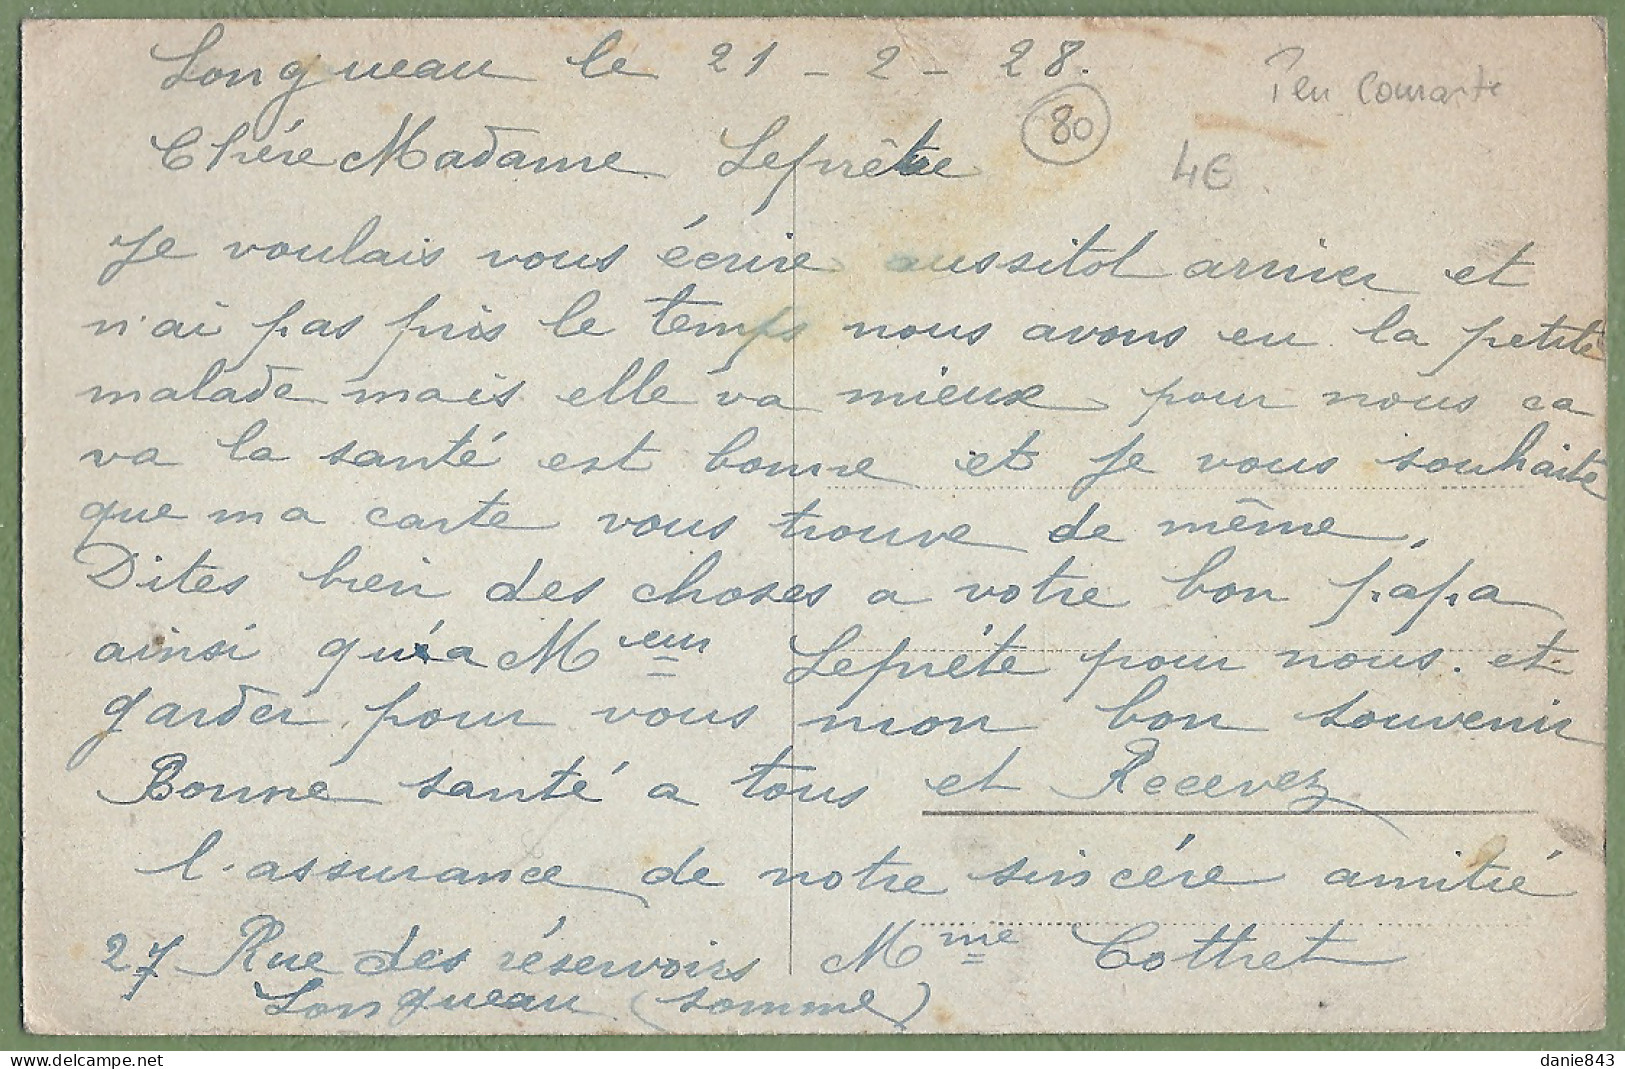 Longueau le 21 - 2 - 28.
Peu courante
80
4€
Chére Madame Leprêtre
Je voulais vous écrire aussitot arriver et
n'ai pas pris le temps nous avons eu la petite
malade mais elle va mieux pour nous ca
va la santé est bonne et je vous souhaite
que ma carte vous trouve de même.
Dites bien des choses a votre bon papa
ainsi qu'a Mʳ Leprête pour nous. et
garder pour vous mon bon souvenir
Bonne santé a tous et Recevez
l'assurance de notre sincére amitié
27 Rue des réservoirs Mme Cottret
Longueau (Somme)
danie843